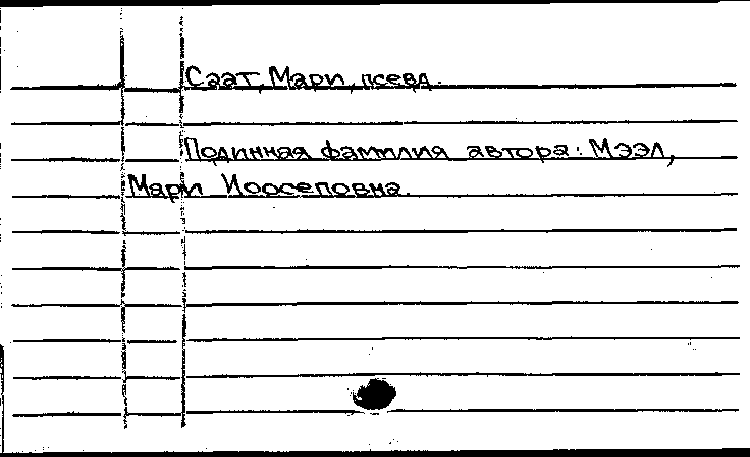 Саат, Мари, псевд.
Подинная фамилия автора: Мээл,
Мари Йоосеповна.